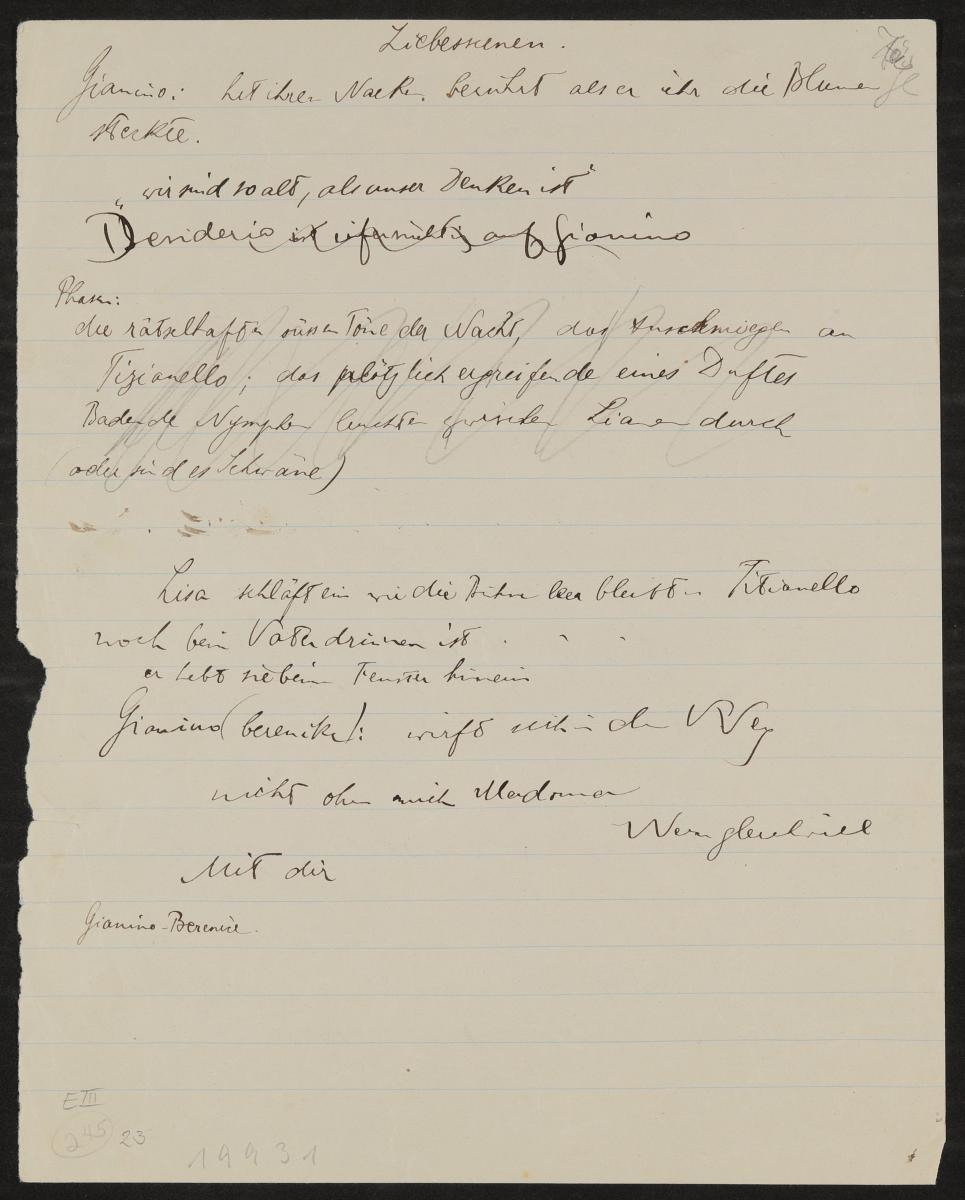 Liebesscenen.
Gianino: hat ihren Nacken berührt als er ihr die Blumen
steckte.
„wir sind so alt, als unser Denken ist“
Desiderio ist eifersüchtig auf Gianino
Phasen:
die rätselhaften süssen Töne der Nacht, das Anschmiegen an
Tizianello; das plötzlich ergreifende eines Duftes
Badende Nymphen leuchten zwischen Lianen durch
(oder sind es Schwäne)
Lisa schläft ein wie die Bühne leer bleibt u Titianello
noch beim Vater drinnen ist . . .
er hebt sie beim Fenster hinein
Gianino (berenike): wirft sich in den Weg
nicht ohne mich Madonna
Mit dir
Gianino-Berenice.
EIII
245 23
19931